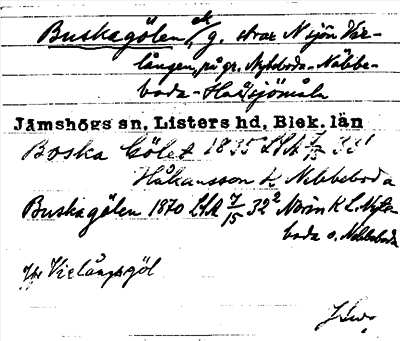 Buskagölen, g. strax N sjön Vir-
lången, på gr. Nybeboda-Näbbe-
boda-Hallsjömåla
Jämshögs sn, Listers hd, Blek. län
Boska Gölet 1835 LSA 7/15 33¹
Håkansson K Nebbeboda
Buskagölen 1870 LSA 7/15 32² Norin K L. Nyte
boda o. Nebbeboda
Jfr Vielångsgöl